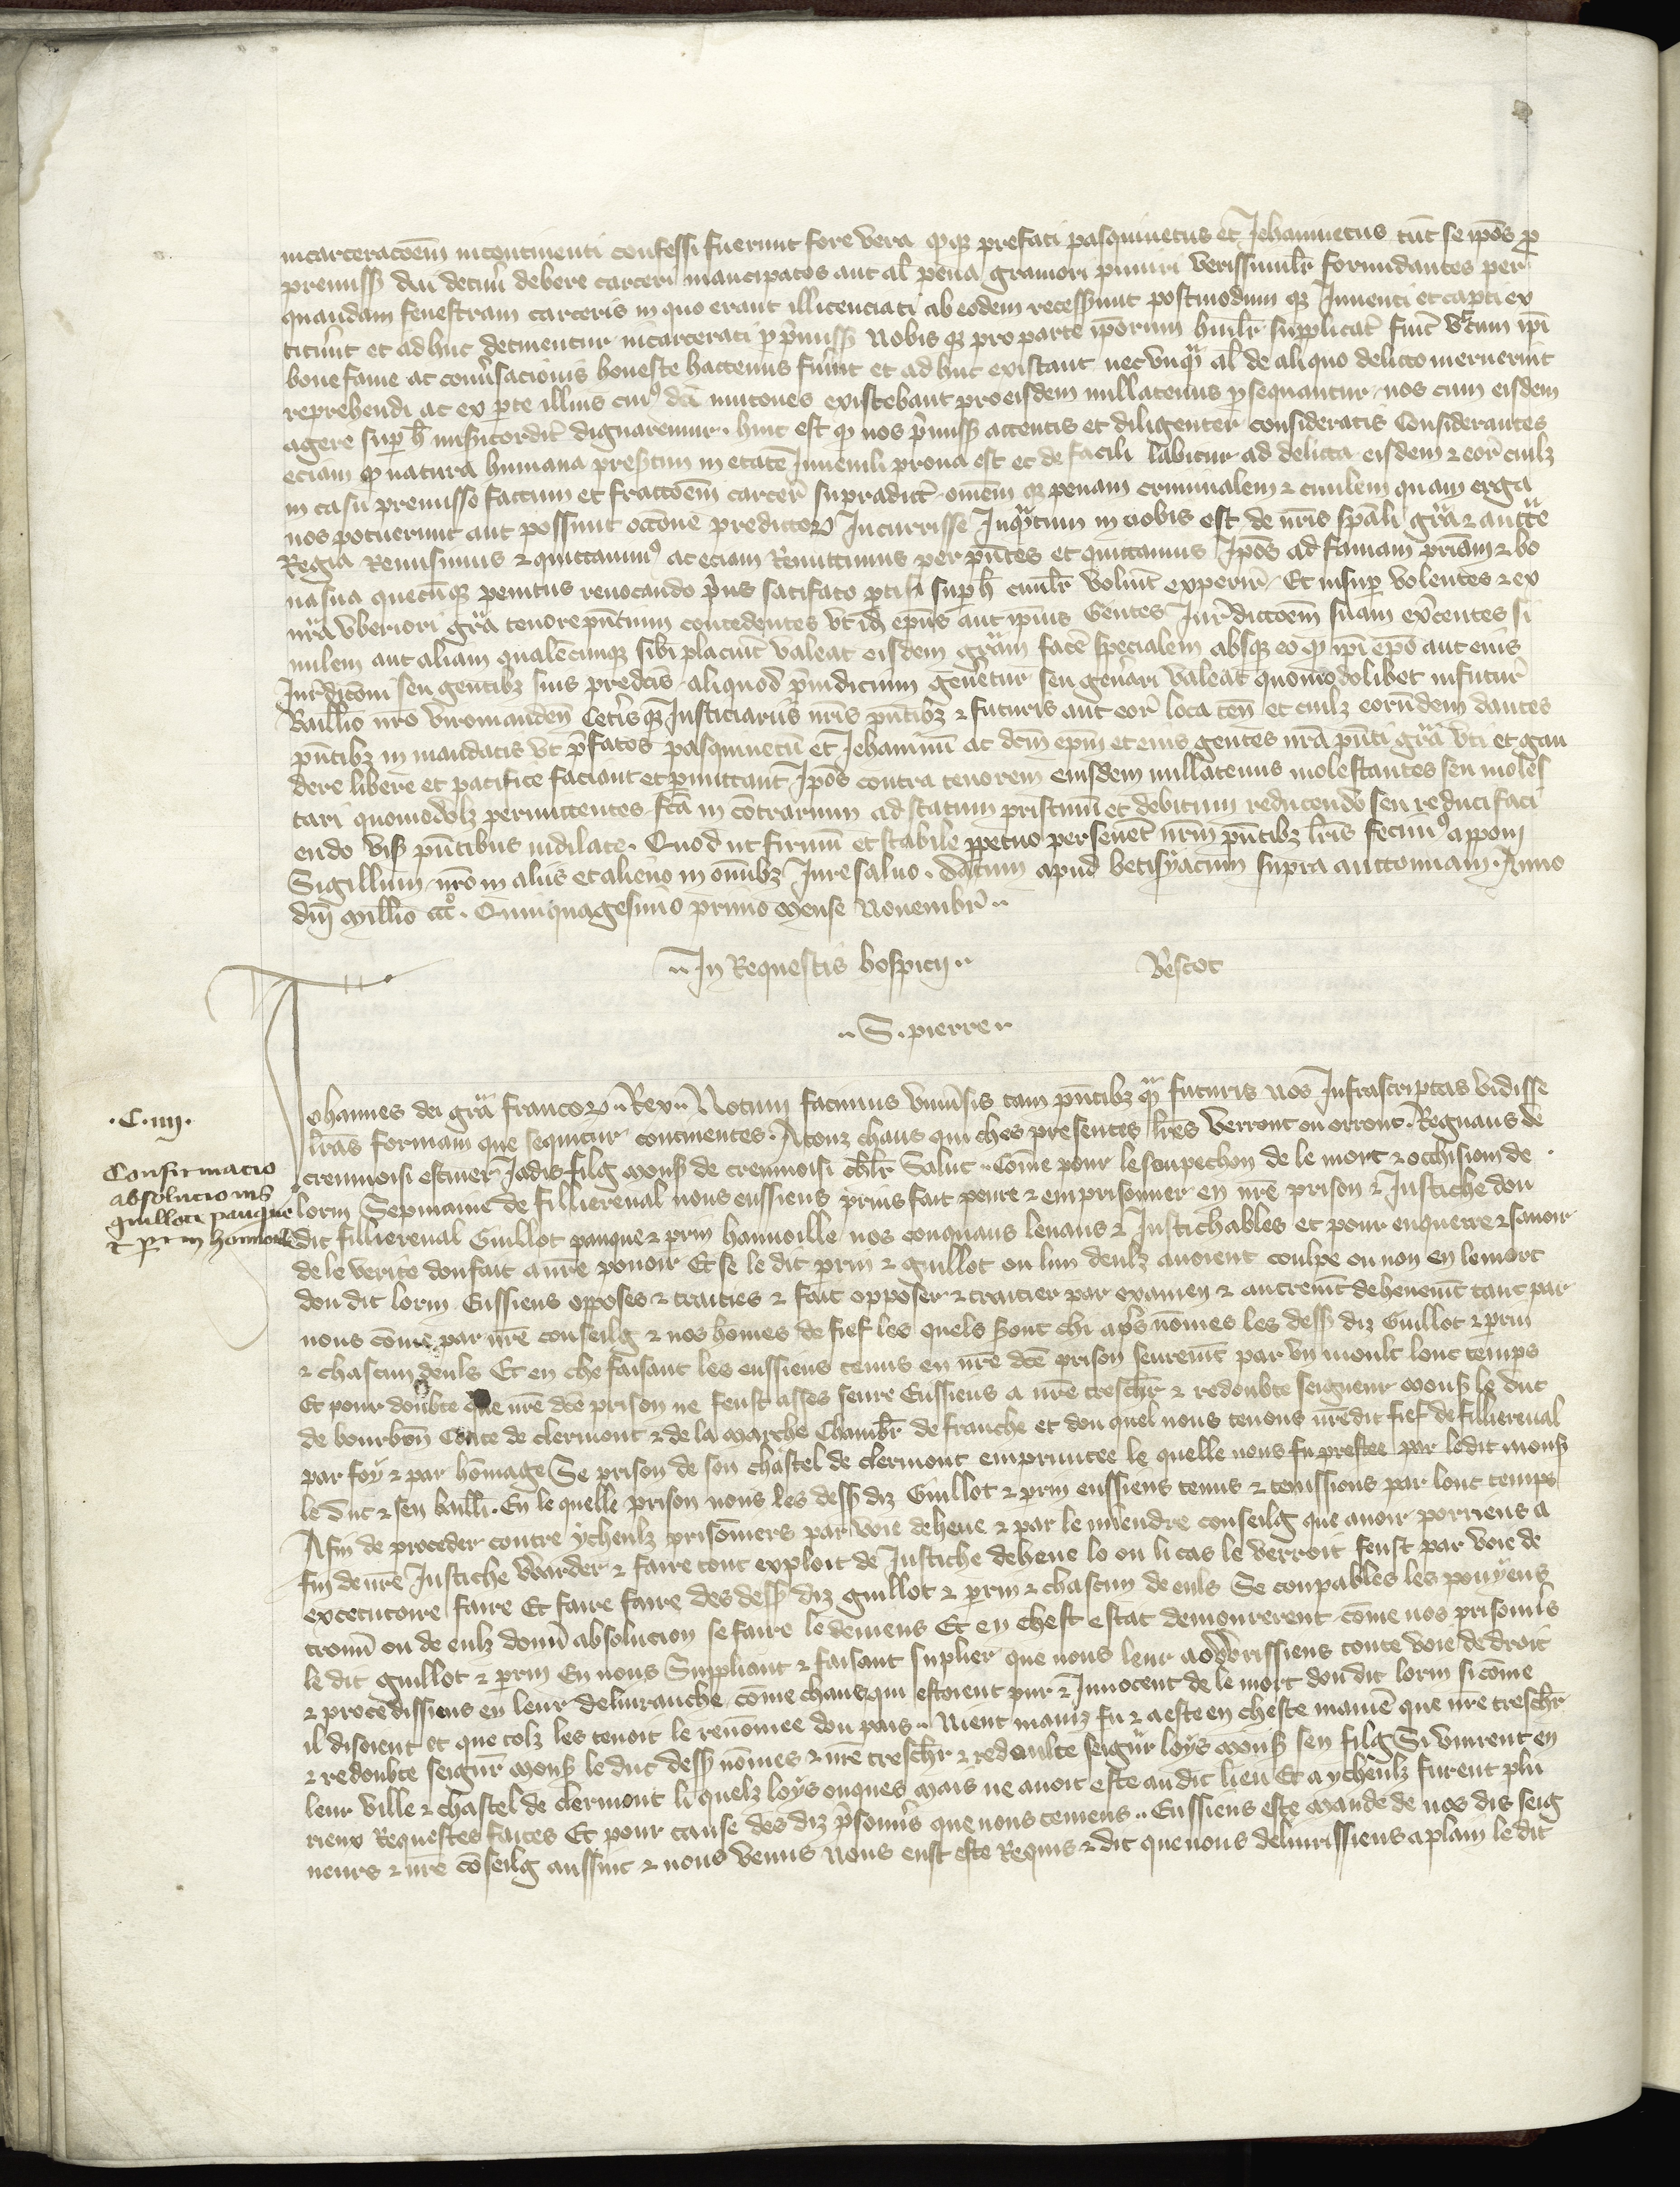 incarceracoēm incontinenti confessi fuerunt fore vera qƺ prefati pasquinetus et Jehaninetus tūc se ipōs ꝓ
premissꝭ diu detinͥ debere carceri mancipatos aut al̄ pena graviori puniri verissimil̄r formidantes per
quandam fenestram carceris in quo erant illicenciati ab eodem recesserunt postmodum qƺ Inventi et capti ex
titerūt et adhuc detinentur incarcerati ꝑ p̄missꝭ Nobis qƺ pro parte ipōrum humil̄r supplicat̄ fuit̄ ut cum ipī
bone fame ac conv̄sacionis honeste hactenus fuerint et adhuc existant nec unqᵃ al̄ de aliquo delicto meruerint
reprehendi ac ex ꝑte illius cuiꝰ dc̄i mutones existebant pro eisdem nullatenus ꝓsequantur nos cum eisdem
agere suꝑ h̄ mis̄icordit̄ dignaremur. hinc est qͥ nos p̄missꝭ attentis et diligenter consideratis Considerantes
eciam qͥ natura humana presertim in etate Juvenili prona est et de facili labitur ad delicta eisdem ⁊ eor̄ cuilƺ
in casu premisso factum et fractōem carcer̄ supradict̄ omēm qƺ penam criminalem ⁊ civilem quam erga
nos potuerunt aut possunt occōne predictoꝝ Incurrisse Inqᵃtum in nobis est de nr̄is sp̄ali gr̄a ⁊ auctē
Regia Remisimus ⁊ quittavimꝰ ac eciam Remittimus per p̄ntes et quittamus Ipōs ad famam pr̄iam ⁊ bo
na sua quecūqƺ penitus revocando p̄us satisfacto ꝑti si suꝑ h̄ civil̄r voluīt experirͥ Et insuꝑ volentes ⁊ ex
nr̄a uberiori gr̄a tenore p̄ntium concedentes ut id̄ ep̄us aut ipīus Gentes Jur̄dictōem suam ex̄centes si
milem aut aliam qualēcunqƺ sibi placuīt valeat eisdem gr̄am facē specialem absqƺ eo qͥ ipī ep̄o aut eius
Jur̄dicōni seu gentibƺ suis predc̄is aliquod p̄iudicium genēetur seu genērari valeat quomodolibet in futur̄
Baillivo nr̄o viromanden̄ Cet̄is qƺ Justiciariis nr̄is p̄ntibƺ ⁊ futuris aut eor̄ loca ten̄ et cuilƺ eorūdem dantes
p̄ntibƺ in mandatis ut p̄fatos pasquinetū et Jehaninū ac dc̄m ep̄m et eius gentes nr̄a p̄nti gr̄a uti et gau
dere libere et pacifice faciant et ꝑmittant Ipōs contra tenorem eiusdem nullatenus molestantes seu moles
tari quomodolƺ permittentes fc̄a in cōtrarium ad statum pristinū et debitum reducendo seu reduci faci
endo visꝭ p̄ntibus indilate. Quod ut firmū et stabile ꝑpetuo perseveret nr̄m p̄ntibƺ lr̄is fecimꝰ apponi
Sigillum nr̄o in aliis et alieno in omībƺ Jure salvo. datum apud betisyacum supra auttonnam. Anno
dn̄i mill̄io CCCᵒ. Quinquagesimo primo mense Novembr̄
In Requestis hospicij
Vescot
S. pierre
Johannes dei gr̄a francoꝝ Rex Notum facimus univ̄sis tam p̄ntibƺ qᵃ futuris nos Infrascriptas vidisse
lr̄as formam que sequitur continentes. A touz chaus qui ches presentes lr̄es verront ou orront. Regnaus de
cremnoisi escuier Jadis filg monsꝭ de cremnoisi chl̄r Salut. Cōme pour le soupechon de le mort ⁊ occhision de
lorin Sepmaine de fillierenal nous eussiens p̄ins fait penre ⁊ emprisonner en nr̄e prison ⁊ Justiche dou
dit fillierenal Guillot panque ⁊ ꝑrin hannoille nos couquans levans ⁊ Justichables et pour enquerre ⁊ savoir
de le verite dou fait a nr̄e povoir Et se le dit ꝑrin ⁊ guillot ou lun deulƺ avoient coulpe ou non en le mort
dou dit lorin Eussiens opposes ⁊ traities ⁊ fait opposer ⁊ traitier par examen ⁊ autremt̄ dehevemt̄ tant par
nous cōme par nr̄e conseilg ⁊ nos hōmes de fief les quels sont chi ap̄s nōmes les dessꝭ diz Guillot ⁊ ꝑrin
⁊ chascun deuls Et en che faisant les eussiens tenus en nr̄e dc̄e prison seuremt̄ par un moult lonc temps
Et pour doubte que nr̄e dc̄e prison ne feust asses seure Eussiens a nr̄e tresch̄r ⁊ redoubte seigneur monsꝭ le duc
de bourbōn Conte de clermont ⁊ de la marche Chambr̄ de franche et dou quel nous tenons nr̄e dit fief de fillierenal
par foy ⁊ par hōmage Se prison de son chastel de clermont empruntee le quelle nous fu prestee par ledit monsꝭ
le duc ⁊ sen baill̄i. En le quelle prison nous les dessꝭ diz Guillot ⁊ ꝑrin eussiens tenus ⁊ tenissiens par lonc temps
Afin de proceder contre ycheulƺ prisōniers par voie deheue ⁊ par le milendre conseilg que avoir porriens a
fin de nr̄e Justiche warder ⁊ faire tout exploit de Justiche deheue lo ou li cas le verroit feust par voie de
excecutoire faire Et faire faire des dessꝭ diz guillot ⁊ ꝑrin ⁊ chascun de euls Se coupables les pouyens
trouv̄ ou de eulƺ donn̄ absolucion se faire le deviens Et en chest estat demourerent cōme nos prisonn̄s
le dit guillot ⁊ ꝑrin En nous Suppliant ⁊ faisant suplier que nous leur aouvrissiens toute voie de droit
⁊ procedissiens en leur delivranche cōme chaux qui estoient pur ⁊ Innocent de le mort dou dit lorin si cōme
il disoient et que tolƺ les tenoit le renōmee dou pais. Nient mainƺ fu ⁊ a este en cheste manīe que nr̄e tresch̄r
⁊ redoubte seignr̄ monsꝭ le duc dessꝭ nōmes ⁊ nr̄e tresch̄r ⁊ redoubte seignr̄ loys monsꝭ sen filg Si vinrent en
leur ville ⁊ chastel de clermont li quelƺ loys onques mais ne avoit este au dit lieu Et a ycheulƺ furent plu
rieux Requestes faites Et pour cause des diz p̄sonn̄s que nous teniens. Eussiens este mande de nos dis seig
neurs ⁊ nr̄e cōseilg aussint ⁊ nous venus Nous eust este Requis ⁊ dit que nous delivrissiens a plain le dit
.C.iiij.
Confirmacio
absolucionis
guilloti panque
⁊ ꝑrin hannoille